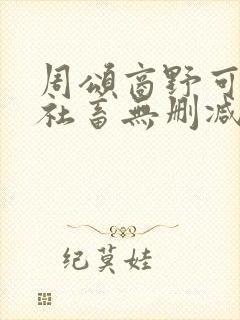 周頌商野可
社畜無删减
纪莫娃